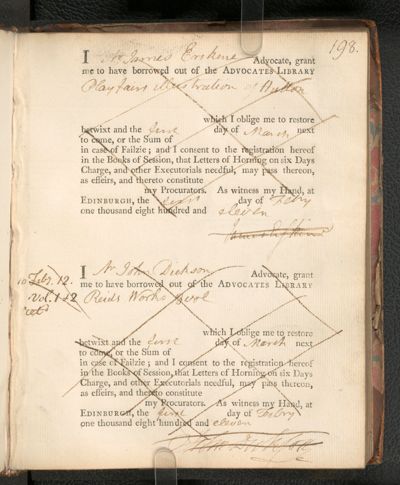 198.
I Mr James Erskine Advocate, grant
me to have borrowed out of the ADVOCATES LIBRARY
Playfairs illustration of Hutton
which I oblige me to restore
betwixt and the first day of March next
to come, or the Sum of
in case of Failzie; and I consent to the registration hereof
in the Books of Session, that Letters of Horning on six Days
Charge, and other Executorials needful, may pass thereon,
as effeirs, and thereto constitute
my Procurators. As witness my Hand, at
EDINBURGH, the first day of Febry
one thousand eight hundred and eleven
James Erskine
I Mr John Dickson Advocate, grant
10 Febr. 12.
me to have borrowed out of the ADVOCATES LIBRARY
vol. 1 & 2
Reids Works
which I oblige me to restore
betwixt and the first day of March next
to come, or the Sum of
in case of Failzie; and I consent to the registration hereof
in the Books of Session, that Letters of Horning on six Days
Charge, and other Executorials needful, may pass thereon,
as effeirs, and thereto constitute
my Procurators. As witness my Hand, at
EDINBURGH, the first day of Febry
one thousand eight hundred and eleven
John Dickson